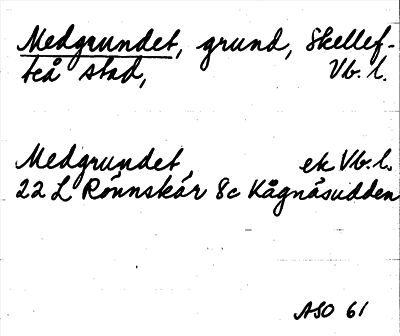 Medgrundet, grund, Skellef-
teå stad, Vb. l.
Medgrundet, ek Vb. l.
22 L Rönnskär 8c Kågnäsudden
ASO 61